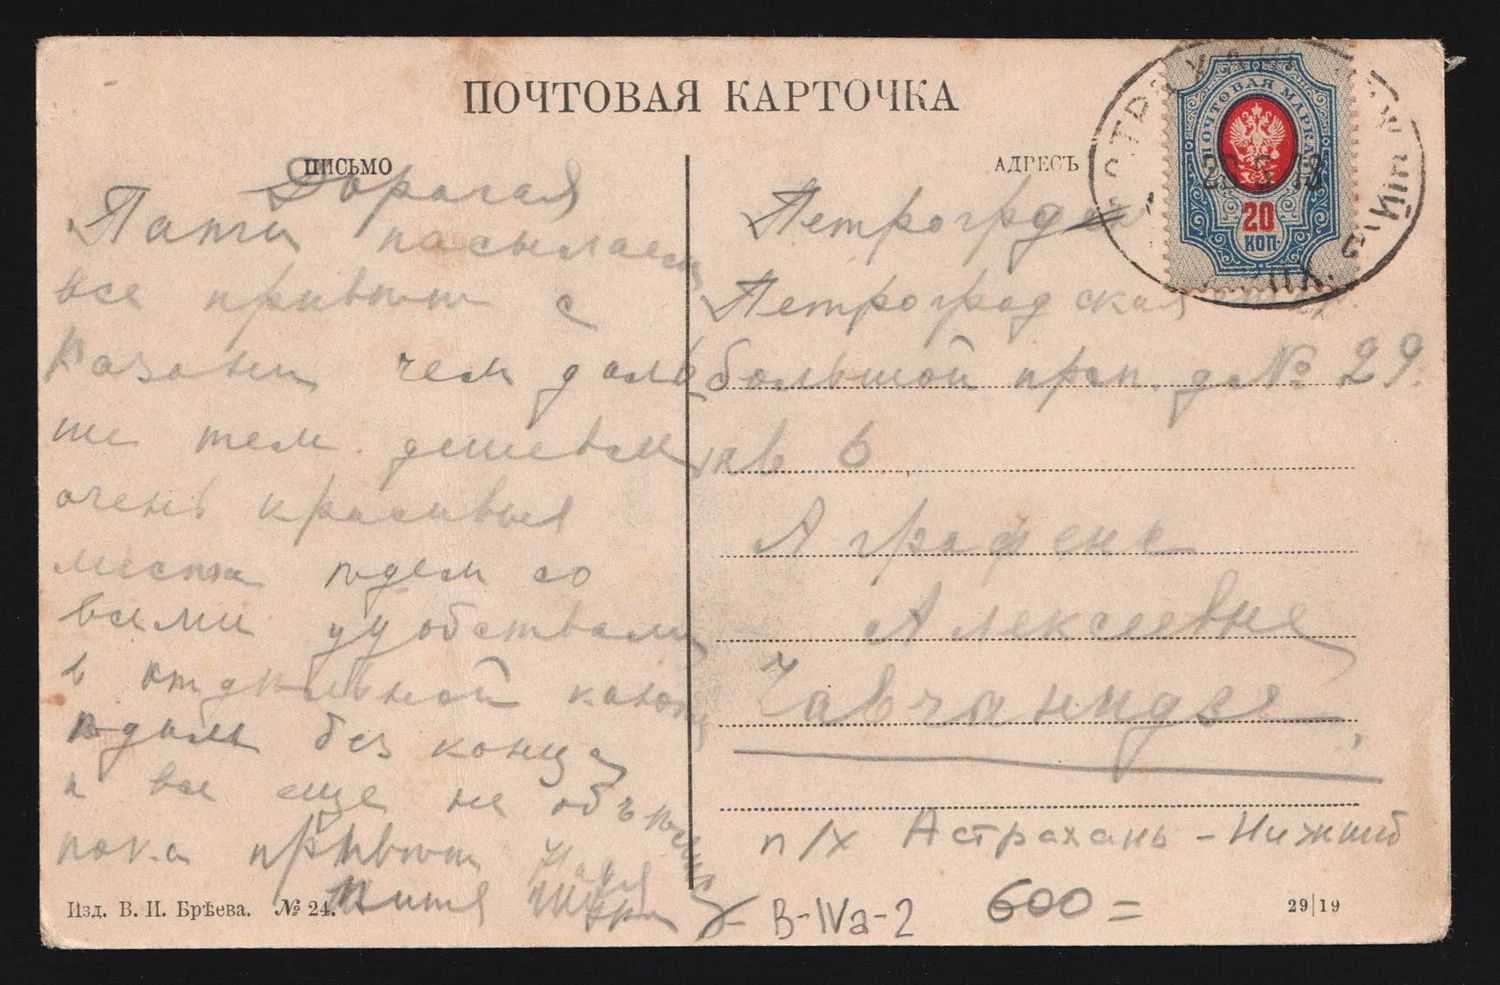 ПОЧТОВАЯ КАРТОЧКА
ПИСЬМО
Дорогая
Пати посылаем
все привет с
Казани чем даль
ше тем дешевле
очень красивые
места едем со
всеми удобствами
в отдельной каюте
едим без конца
и все еще не объелись
пока привет Надя
Витя Шура
Изд. В. И. Брѣева. № 24.
АДРЕСЪ
ПОЧТОВАЯ МАРКА
20
КОП
Петроград
Петроградская
большой прсп. д № 29.
кв 6
Аграфене
Алексеевне
Чавчанидзе
п/х Астрахань - Нижний
В-IVа-2
600 =
29|19